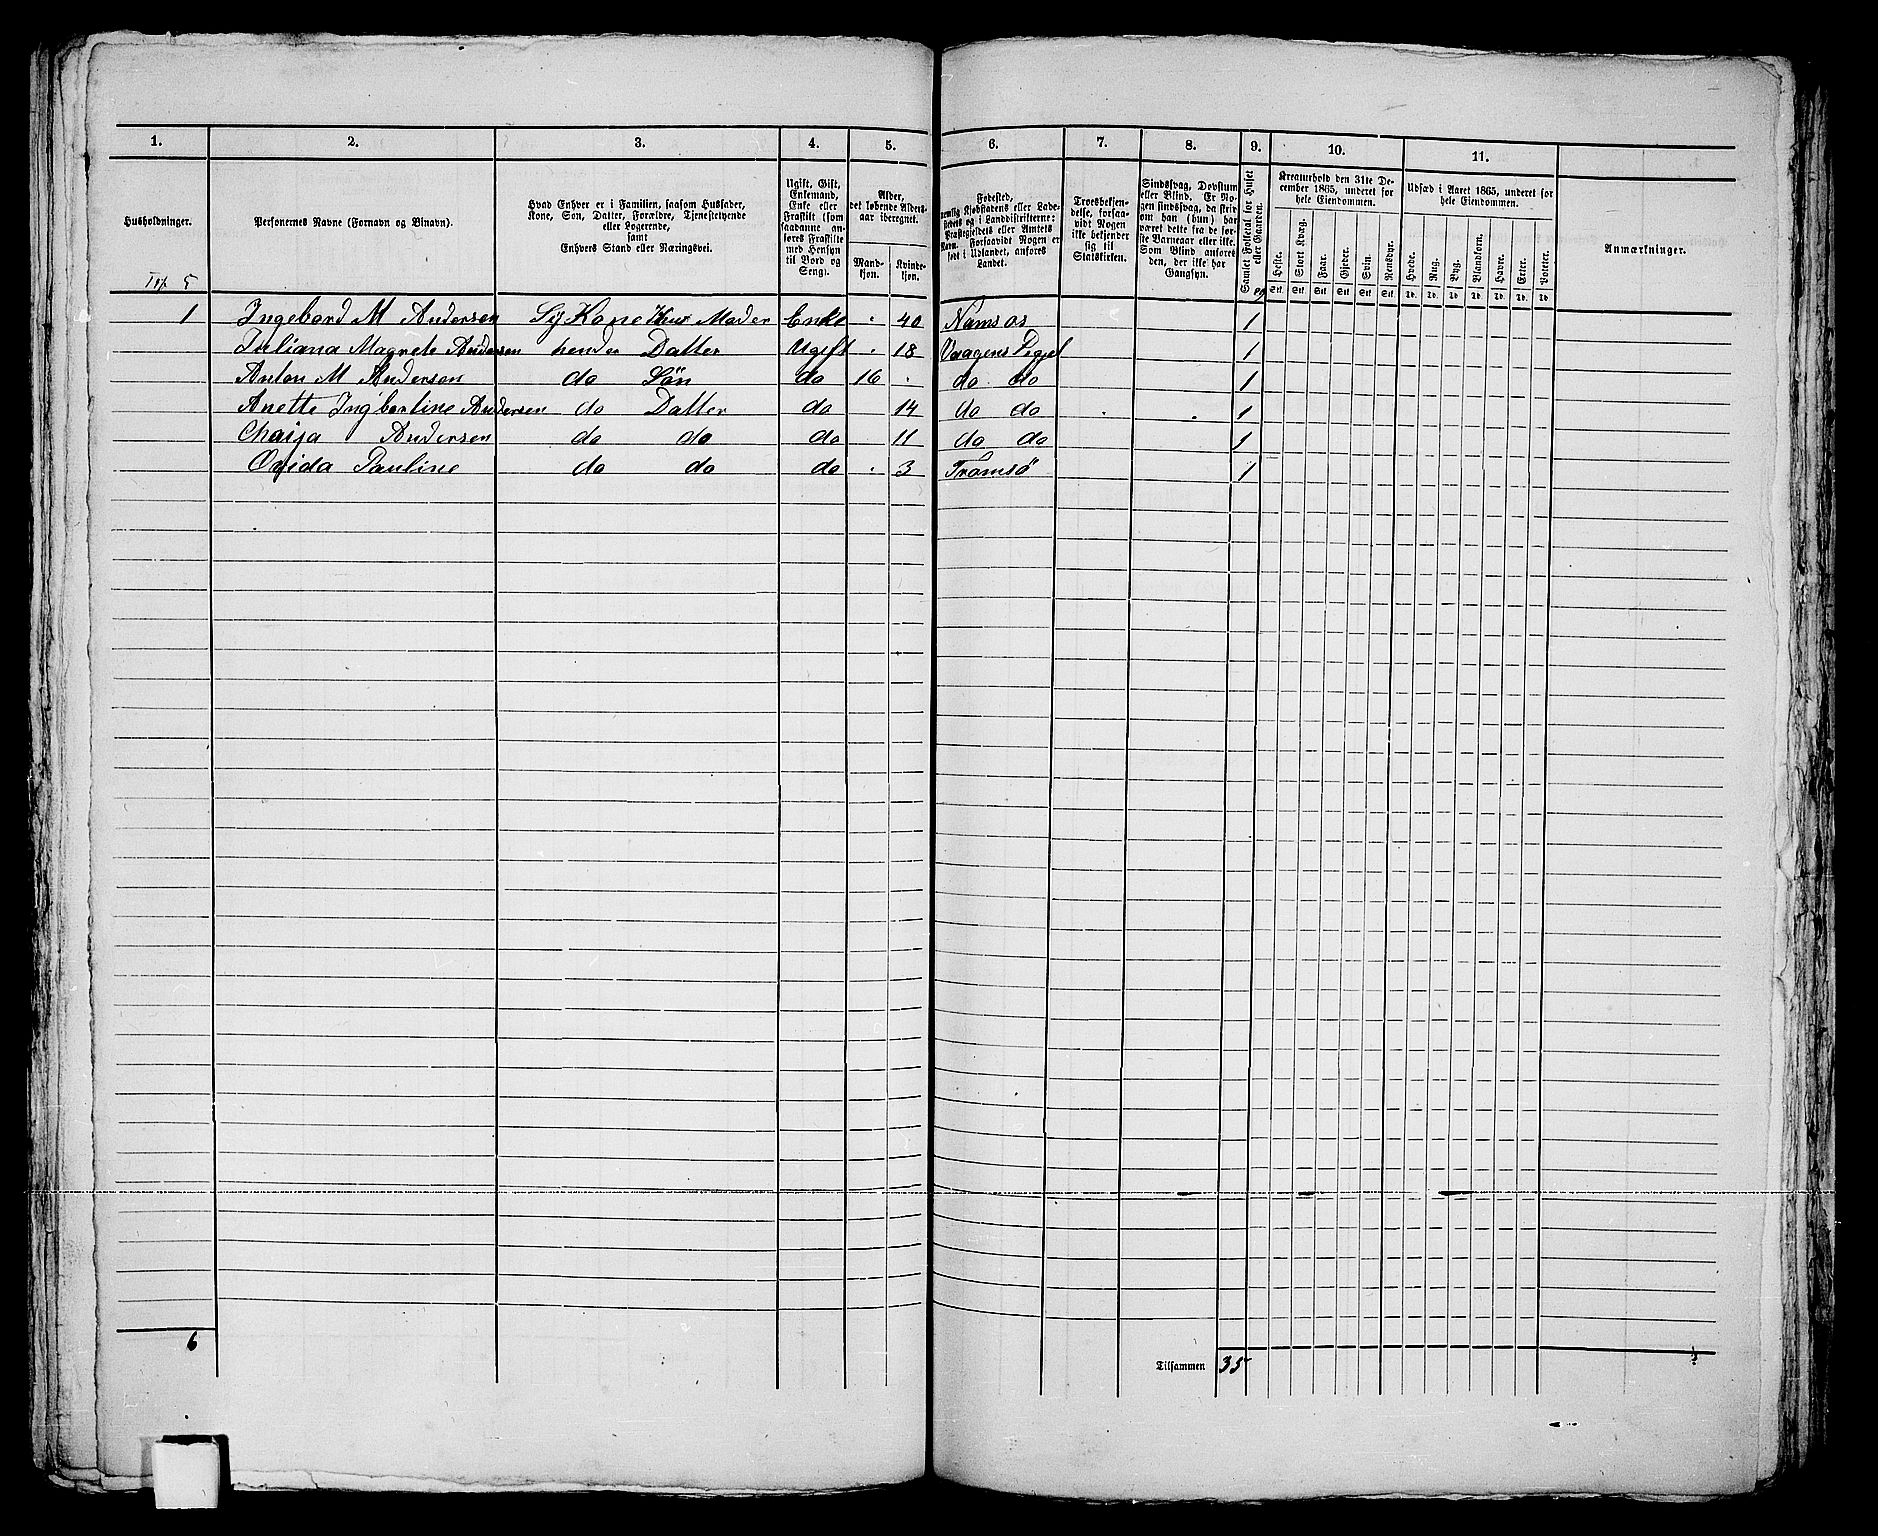 1. 2. 3. 4. 5. 6. 7. 8. 9. 10. 11.
Husholdninger.
Personernes Navne (Fornavn og Binavn).
Hvad Enhver er i Familien, saasom Husfader,
Kone, Søn, Datter, Forældre, Tjenestetyende
eller Logerende,
samt
Enhvers Stand eller Næringsvei.
Ugift, Gift,
Enkemand,
Enke eller
Fraskilt (som
saadanne an-
føres Fraskilte
med Hensyn
til Bord og
Seng).
Alder,
det løbende Alders-
aar iberegnet.
Mand-
kjøn.
Kvinde-
kjøn.
Fødested,
nemlig Kjøbstadens eller Lade-
stedets og i Landdistrikterne:
Præstegjeldets eller Amtets
Navn. Forsaavidt Nogen er
født i Udlandet, anføres
Landet.
Troesbekjen-
delse, forsaa-
vidt Nogen
ikke bekjender
sig til
Statskirken.
Sindssvag, Døvstum
eller Blind. Er No-
gen sindssvag, da skriv
om han (hun) har
været dette fra de før-
ste Barneaar eller ikke.
Som Blind anføres
den, der ikke har
Gangsyn.
Samlet Folketal for Huset
eller Gaarden.
Kreaturhold den 31te De-
cember 1865, underet for
hele Eiendommen.
Heste. Stort Kvæg. Faar. Gjeder. Svin. Rensdyr.
Stk. Stk. Stk. Stk. Stk. Stk.
Udsæd i Aaret 1865, underet for
hele Eiendommen.
Hvede. Rug. Byg. Blandkorn. Havre. Erter. Poteter.
Td. Td. Td. Td. Td. Td. Td.
Anmærkninger.
5
1 Ingebord M Andersen Sÿ Kone Moder Enke 40 Namsos 1
Juliana Magrete Andersen hender Datter Ugift 18 Vaagens 1
Anton M Andersen do Sön do 16 do do 1
Anette Ingbortine Andersen do Datter do 14 do do 1
Chaija Andersen do do do 11 do do 1
Ovida Pauline do do do 3 Tromsö 1
6 Tilsammen 35